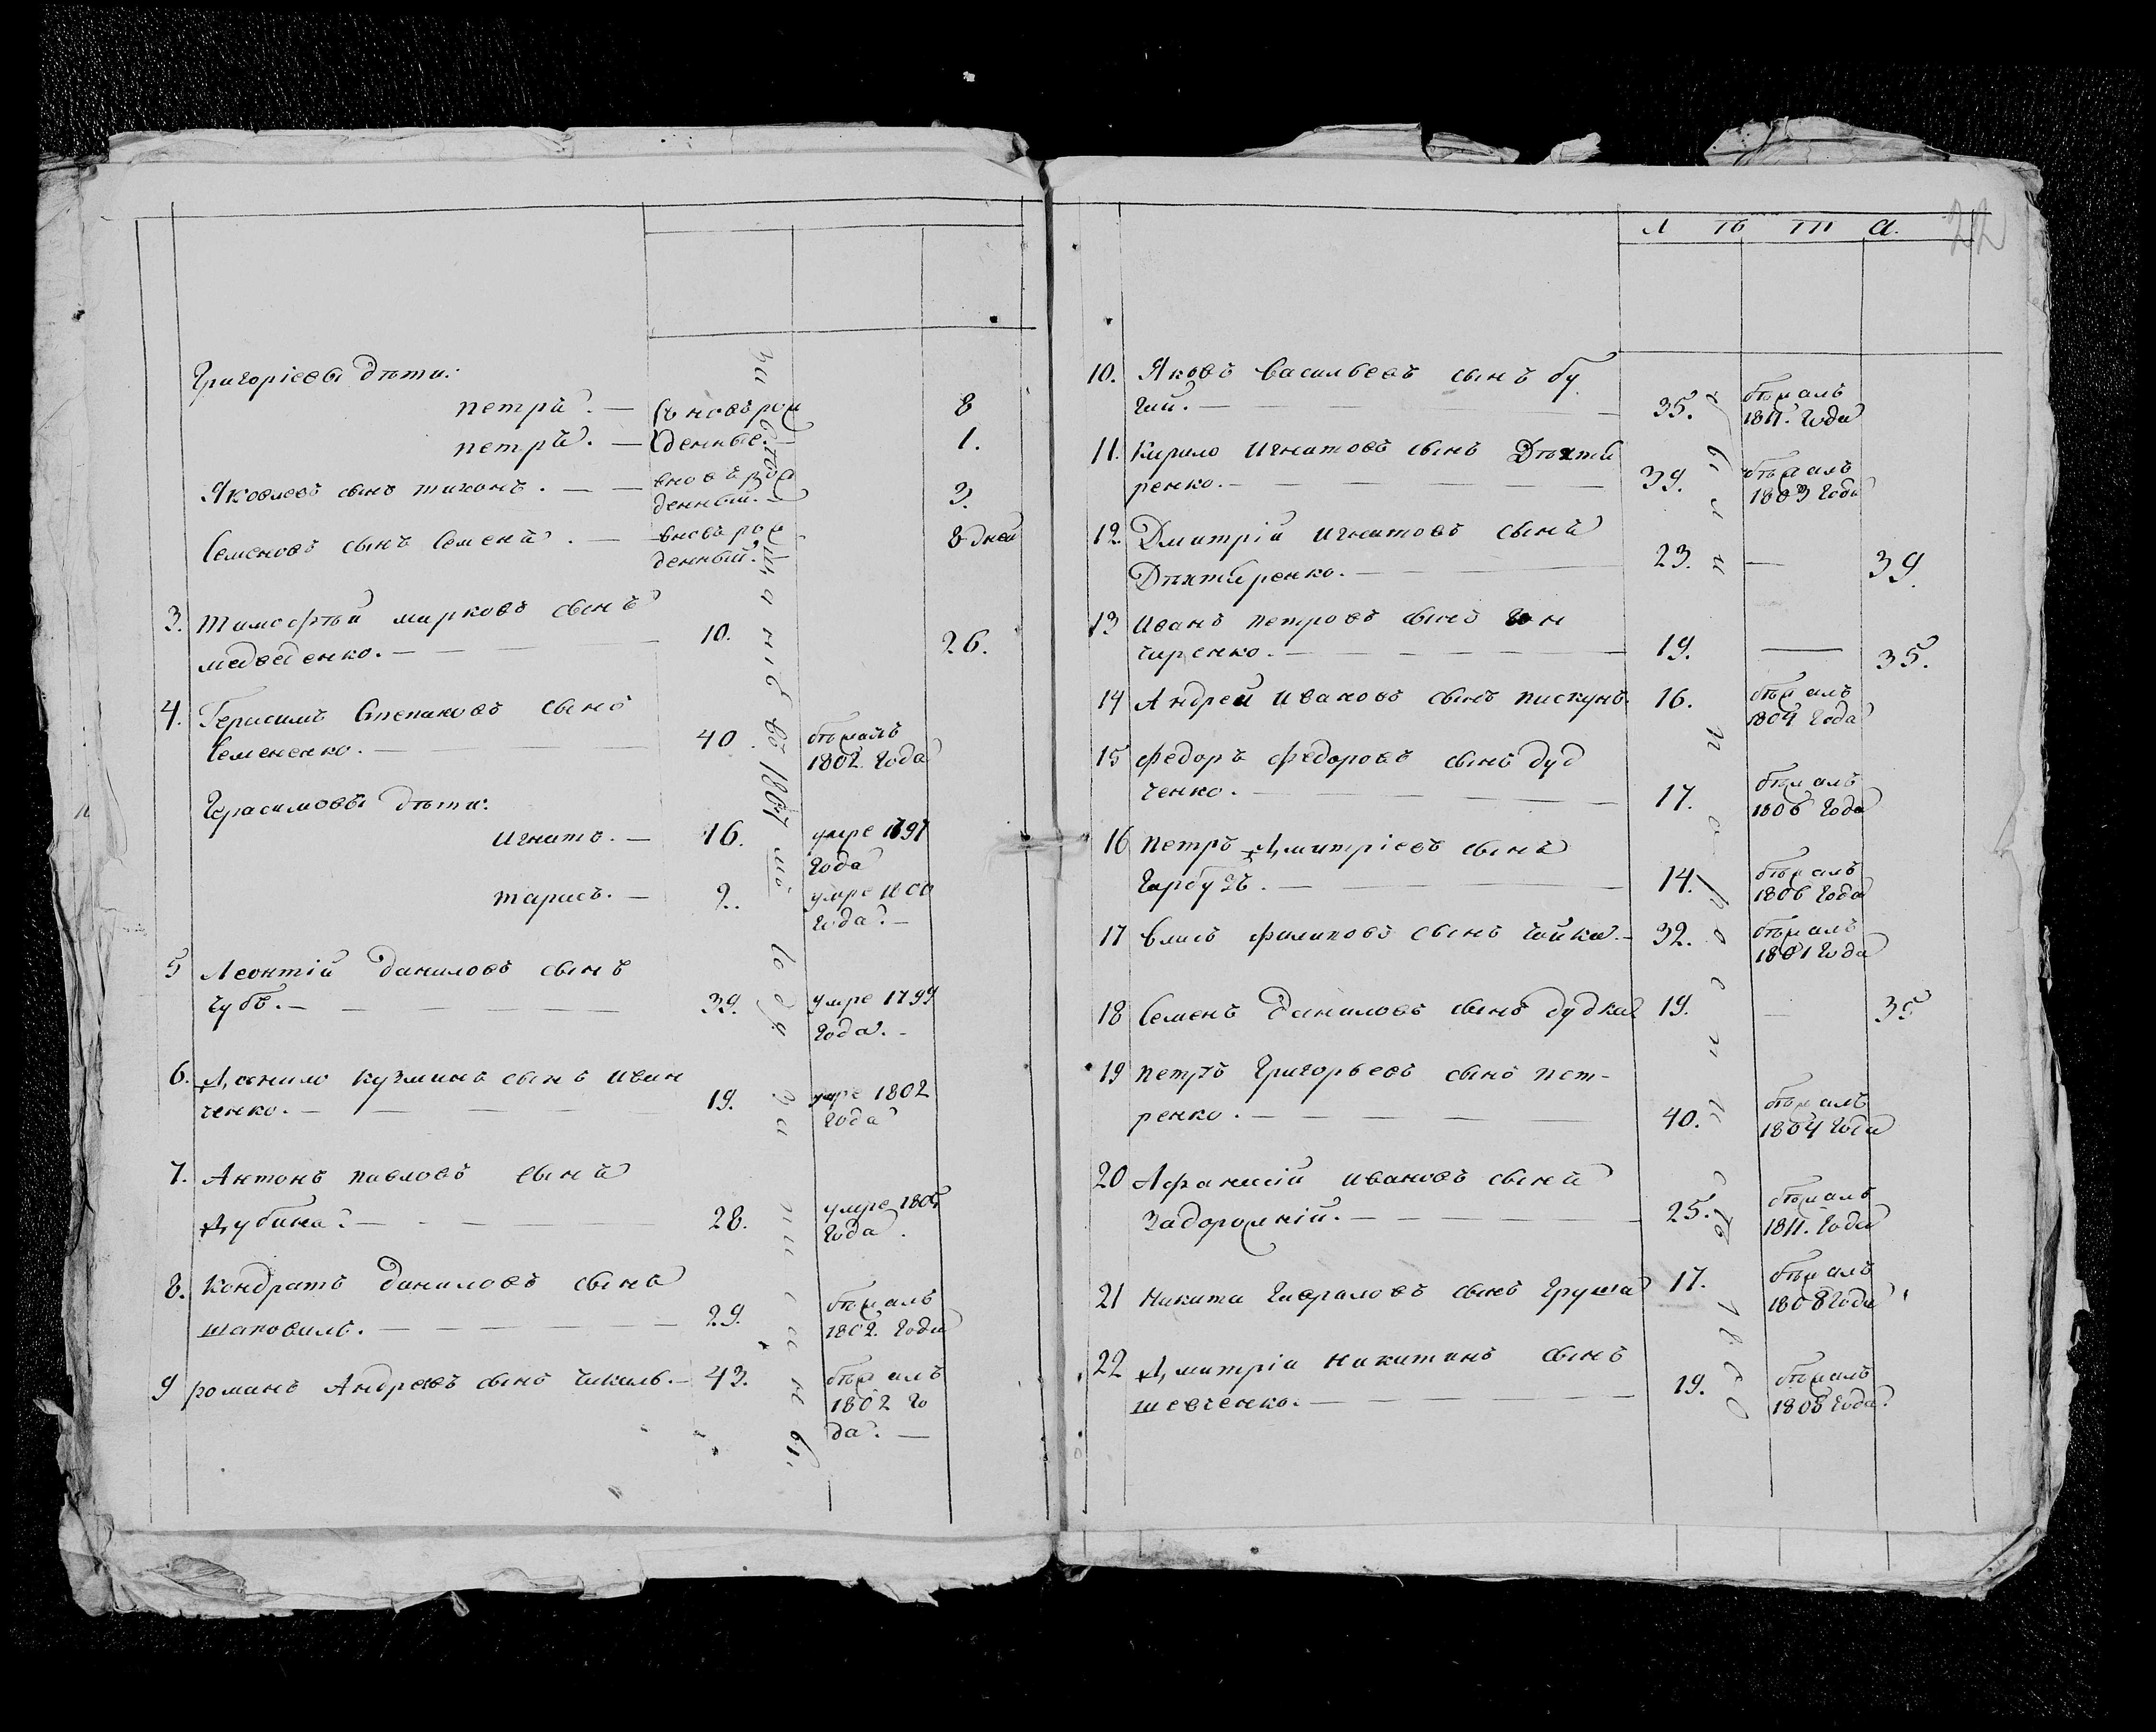 Григоріевы дѣти:
петръ. — вновь рож 8
петръ. — денные. — 1.
Яковлевъ сынъ тихонъ. — — вновь рож
денный. — 3.
Семеновъ сынъ Семенъ. — вновь рож 8 дней
денный.
3. Тимофѣй марковъ сынъ
медведенко. — — — 10. 26.
4. Герасимъ Степановъ сынъ
Семененко. — 40. бѣжалъ
1802. Года
Герасимовы дѣти:
игнатъ. — 16. умре 1797
Года
тарасъ. — 2. умре 1800
Года. —
5 Леонтій даниловъ сынъ
чубъ. — — — — 39. умре 1799
Года. —
6. Данило кузминъ сынъ иван
ченко. — — — — 19. умре 1802
Года
7. Антонъ павловъ сынъ
Дубина. — — — 28. умре 1805
Года.
8. Кондратъ даниловъ сынъ
шаповалъ. — — — — 29. бѣжалъ
1802. Года
9 романъ Андреевъ сынъ чикалъ. — 43. бѣжалъ
1802 Го
да. —
за
во 180
мъ
году
за
22
Л Ѣ Т А.
10. Яковъ васильевъ сынъ бу
гай. — — — 35. бѣжалъ
1811. Года
11. Кирило игнатовъ сынъ Дѣхтя
ренко. — — — — 39. бѣжалъ
1803 Года
12. Дмитрій игнатовъ сынъ
Дѣхтяренко. — 23. — 39.
13 иванъ петровъ сынъ гон
чаренко. — — — — 19. — 35.
14 Андрей ивановъ сынъ пискунъ. 16. бѣжалъ
1804 Года
15 федоръ федоровъ сынъ дуд
ченко. — — — — 17. бѣжалъ
1806 Года
16 петръ Дмитріевъ сынъ
гарбузъ. — — — 14. бѣжалъ
1806 Года
17 власъ филиповъ сынъ чайка. — 32. бѣжалъ
1801 Года
18 Семенъ даниловъ сынъ дудка 19. — 35
19 петръ Григорьевъ сынъ пет-
ренко. — — — — 40. бѣжалъ
1804 Года
20 Афанасій ивановъ сынъ
Задорожній. — — — — 25. бѣжалъ
1811. Года
21 Никита Гавриловъ сынъ Груша 17. бѣжалъ
1808 Года
22 Дмитрій никитинъ сынъ
шевченко. — — — — 19. бѣжалъ
1808 Года.